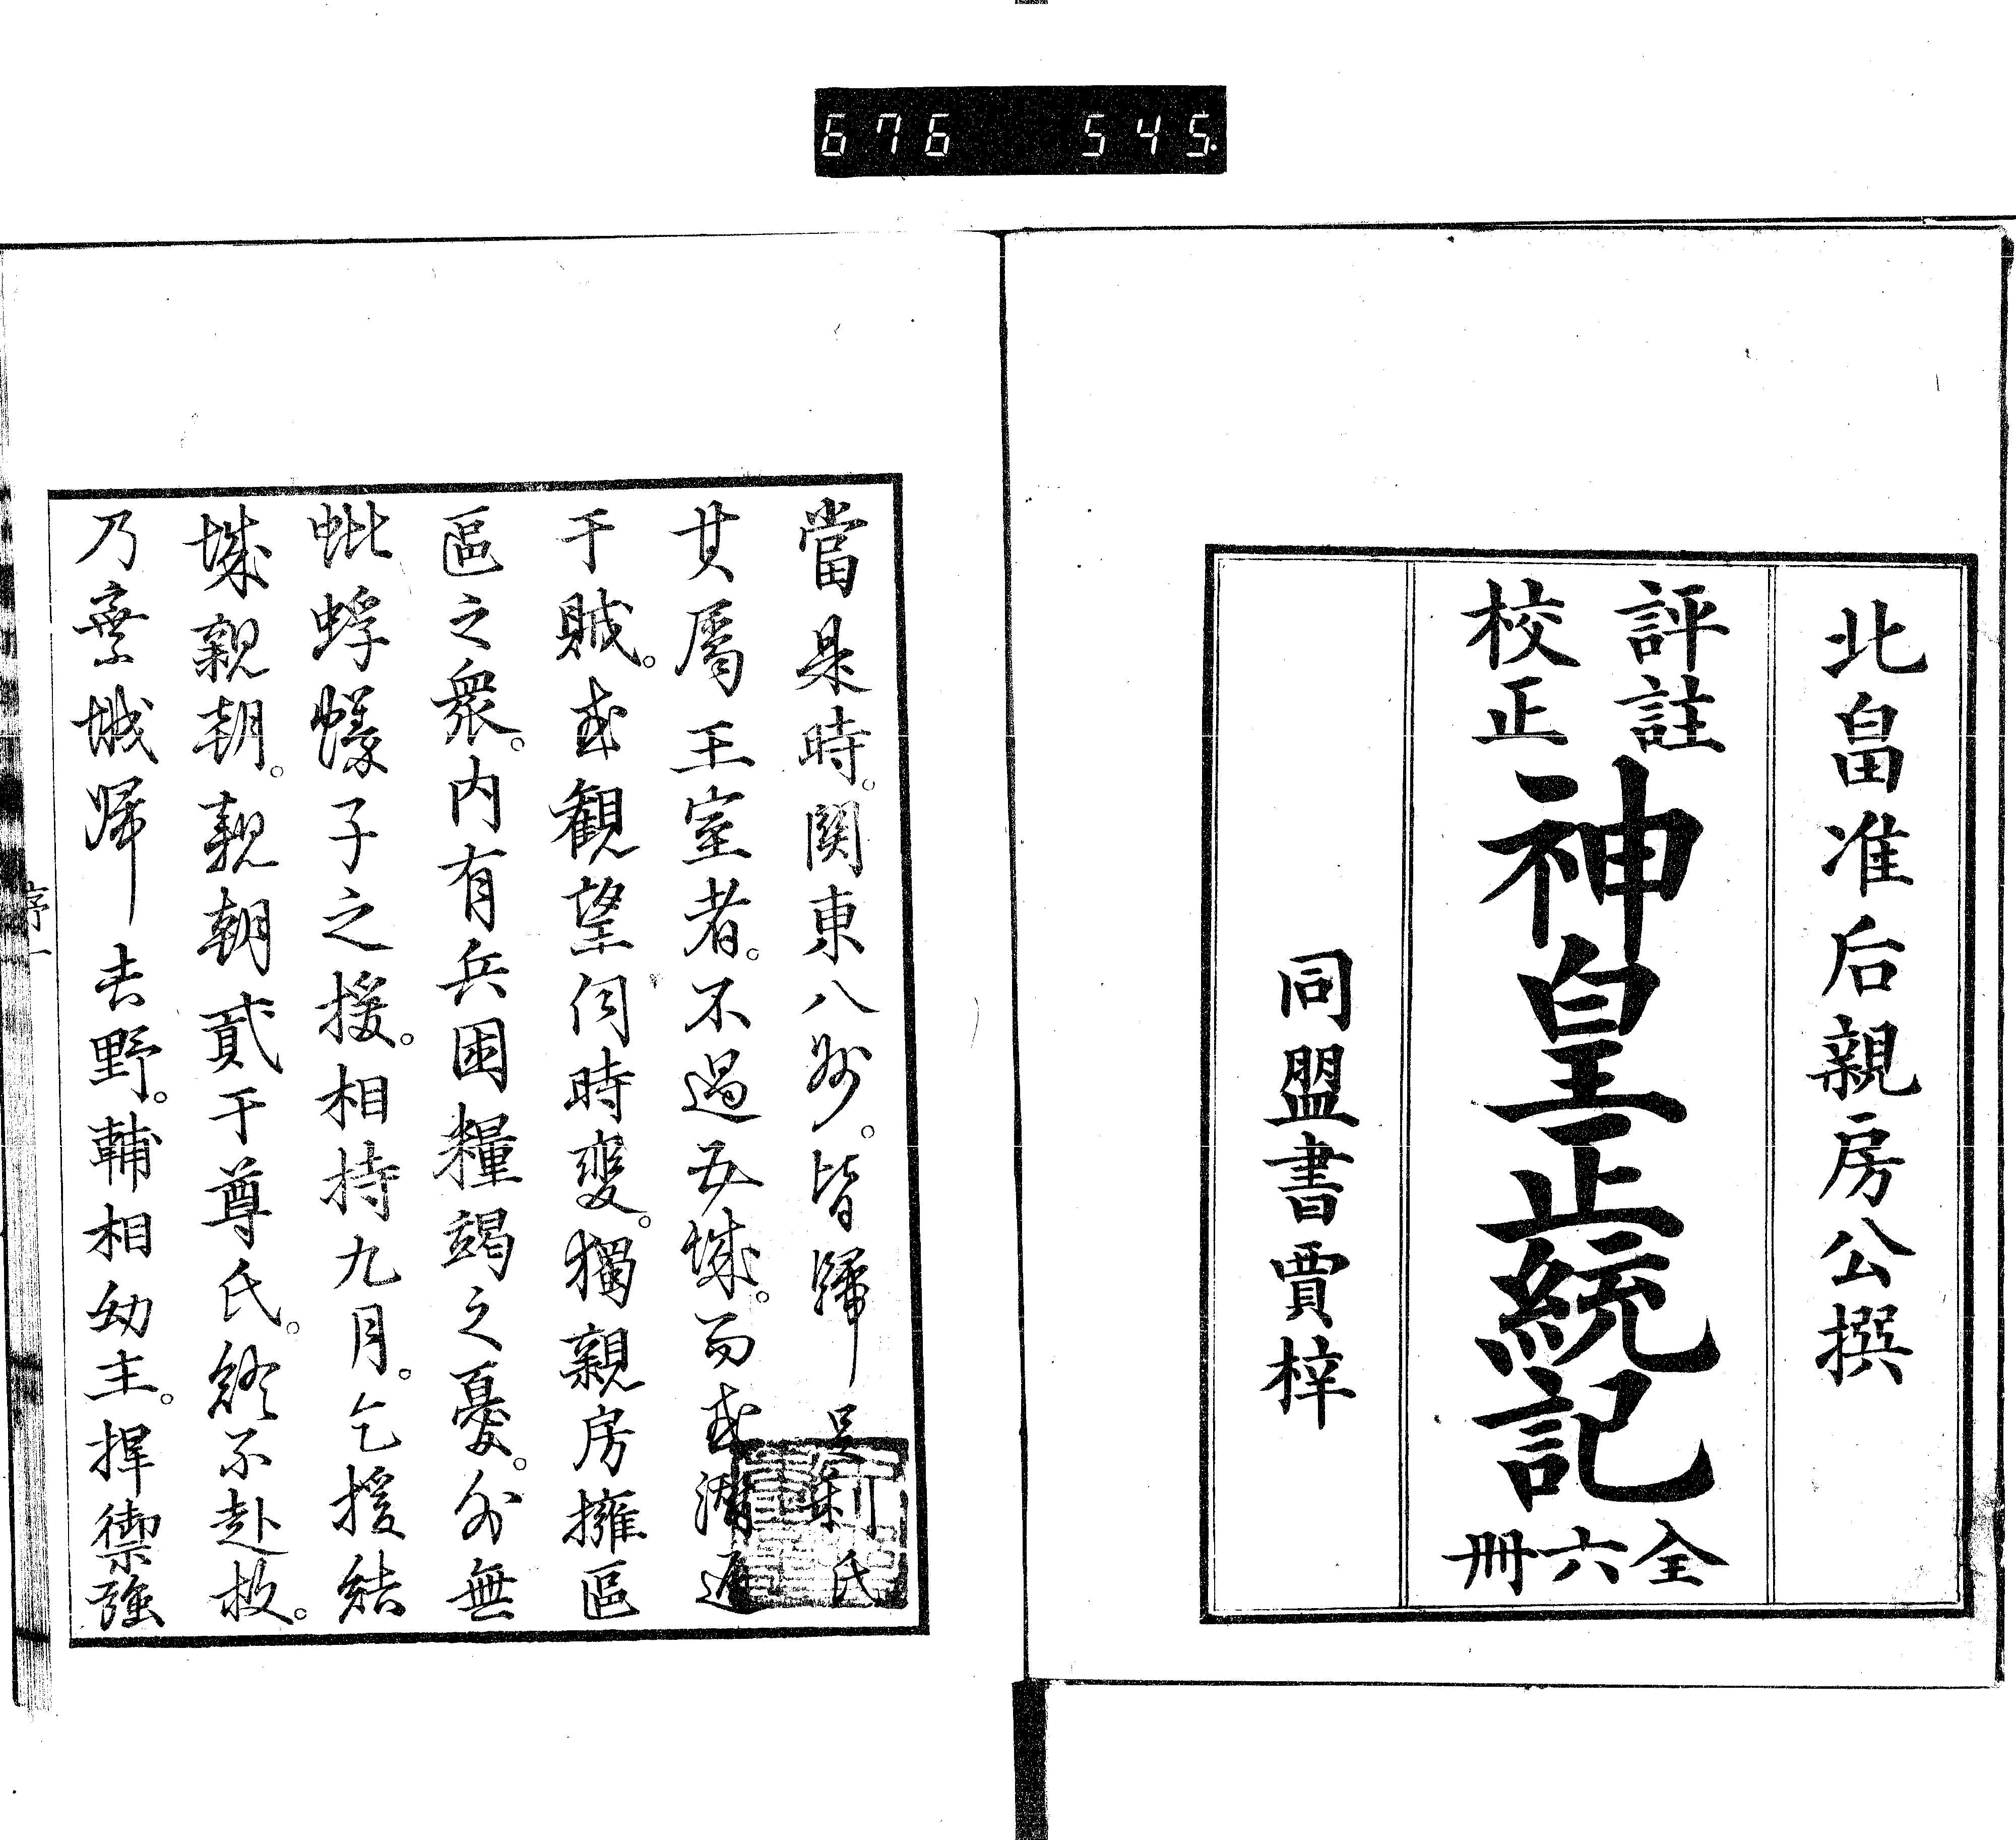 676 545
北畠准后親房公撰
評註
校正
神皇正統記
全六冊
同盟書賈梓
當是時。関東八州。皆歸足利氏
其屬王室者。不過五城。而或溝逼
于賊。或観望伺時變。獨親房擁區
區之衆。内有兵困糧竭之憂。外無
蚍蜉蟻子之援。相持九月。乞援結
城親朝。親朝貳于尊氏。終不赴救。
乃棄城歸吉野。輔相幼主。捍禦強
序一